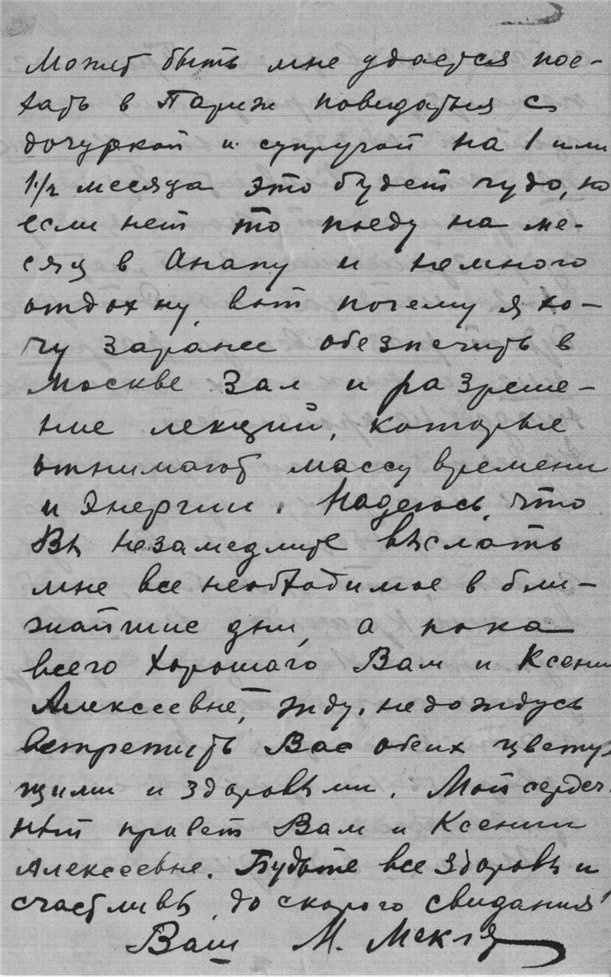 Может быть мне удается пое-
хать в Париж повидаться с
дочуркой и супругой на 1 или
1½ месяца это будет чудо, но
если нет то поеду на ме-
сяц в Анапу и немного
отдохну, вот почему я хо-
чу заранее обезпечить в
Москве Зал и разреше-
ние лекций, которые
отнимают массу времени
и энергии. Надеюсь, что
Вы незамедлите выслать
мне все необходимое в бли-
жайшие дни, а пока
всего хорошаго Вам и Ксении
Алексеевне, жду, не дождусь
встретить Вас обеих цвету-
щими и здоровыми. Мой сердеч-
ный привет Вам и Ксении
Алексеевне. Будьте все здоровы и
счастливы, до скорого свидания!
Ваш М.